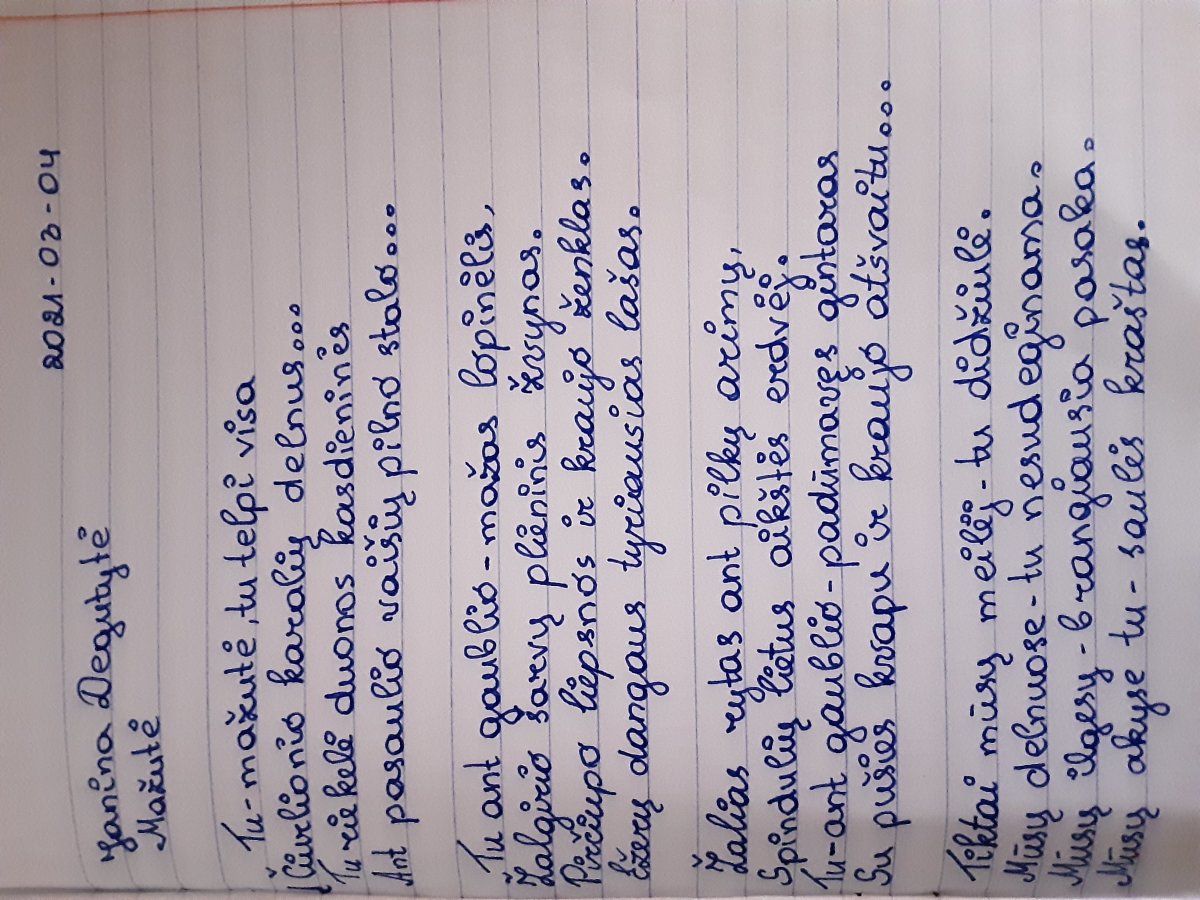 2021-03-04
Janina Degutytė
Mažutė
Tu-mažutė, tu telpi visa
Į Čiurlionio karalių delnus...
Tu riekelė duonos kasdieninės
Ant pasaulio vaišių pilno stalo...
Tu ant gaublio-mažas lopinėlis,
Žalgirio šarvų plieninis žvynas.
Pirčiupo liepsnos ir kraujo ženklas.
Ežerų dangaus tyriausias lašas.
Žalias rytas ant pilkų arimų,
Spindulių lietus aikštės erdvėj.
Tu-ant gaublio-padūmavęs gintaras
Su pušies kvapu ir kraujo atšvaitu...
Tiktai mūsų meilėj-tu didžiulė.
Mūsų delnuose-tu nesudeginama.
Mūsų ilgesy-brangiausia pasaka.
Mūsų akyse tu-saulės kraštas.